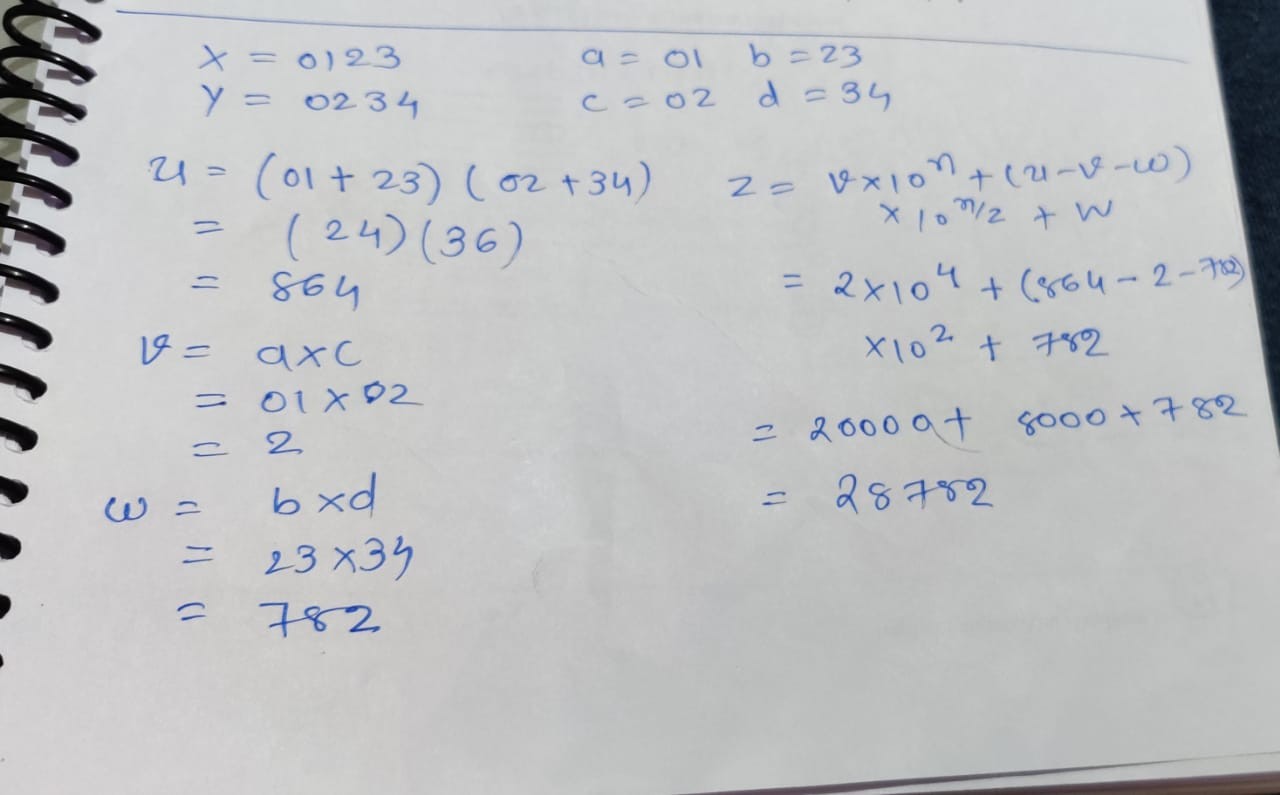 X = 0123 a = 01 b = 23
Y = 0234 c = 02 d = 34
u = (01 + 23) (02 + 34)
= (24)(36)
= 864
v = a×c
= 01 × 02
= 2
w = b×d
= 23 × 34
= 782
z = v×10ⁿ + (u-v-w)
× 10^n/2 + w
= 2×10⁴ + (864 - 2 - 782)
×10² + 782
= 20000 + 8000 + 782
= 28782